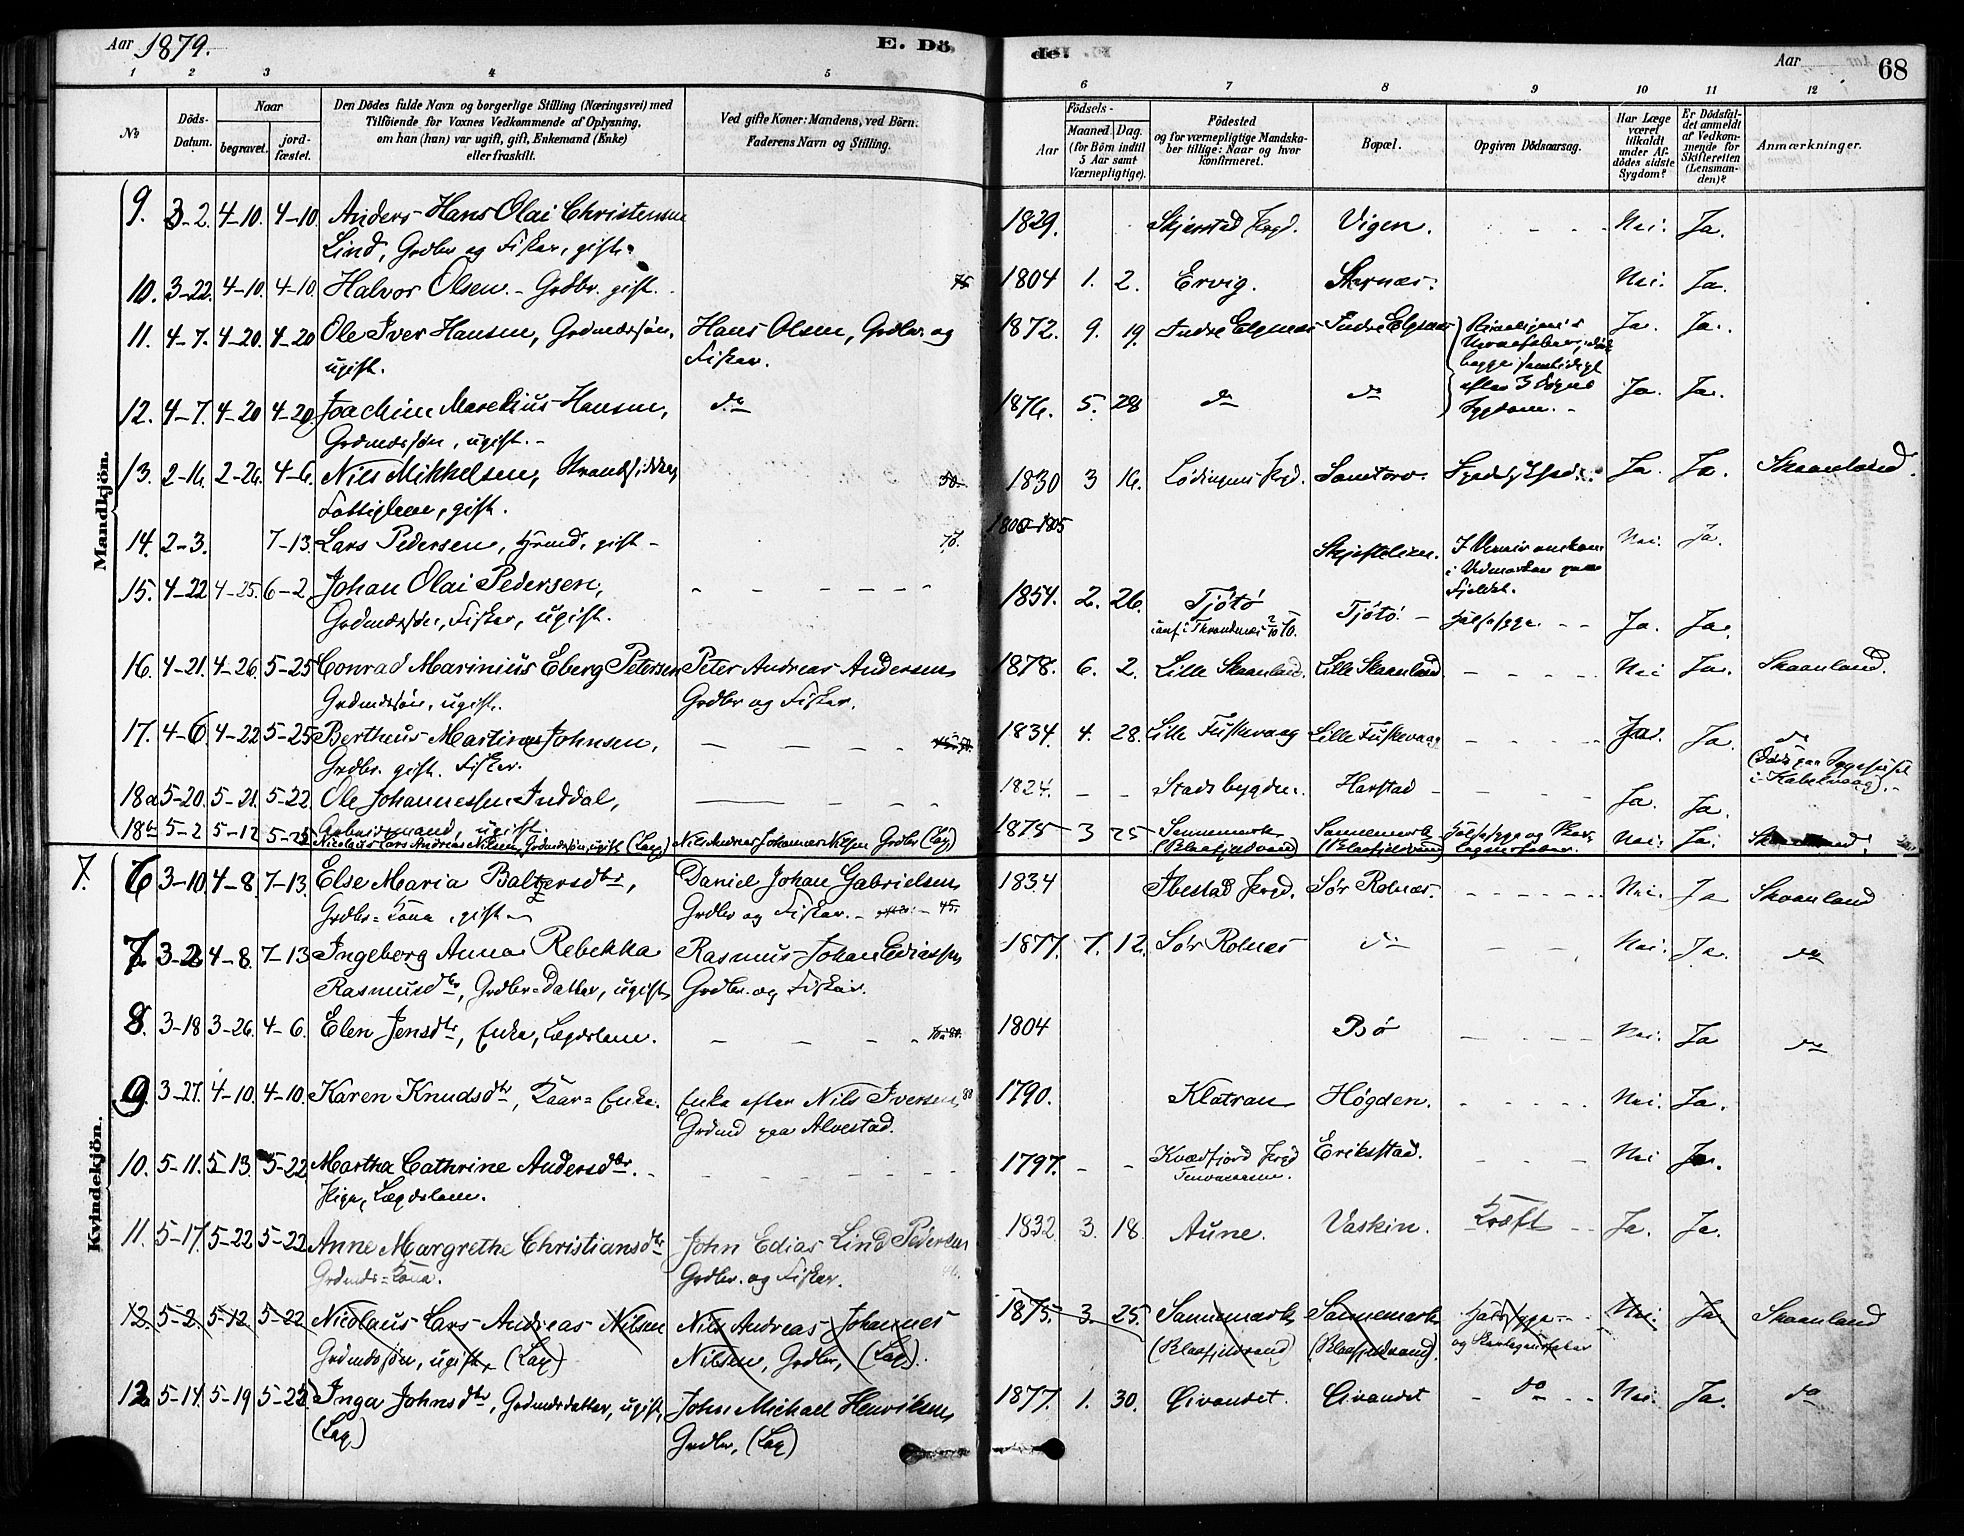 Aar 1879.
E. Dö
de.
Aar
68
1 2 3 4 5 6 7 8 9 10 11 12
No
Döds-Datum.
Naar
begravet. jordfæstet.
Den Dödes fulde Navn og borgerlige Stilling (Næringsvei) med
Tilföiende for Voxnes Vedkommende af Oplysning,
om han (hun) var ugift, gift, Enkemand (Enke)
eller fraskilt.
Ved gifte Koner: Mandens, ved Börn:
Faderens Navn og Stilling.
Födsels-
Aar
Maaned. Dag.
(for Börn indtil
5 Aar samt
Værnepligtige).
Födested
og for værnepligtige Mandskaber tillige: Naar og hvor
konfirmeret.
Bopæl.
Opgiven Dödsaarsag.
Har Læge
været
tilkaldt
under Afdödes sidste
Sygdom?
Er Dödsfaldet anmeldt
af Vedkommende for
Skifteretten
(Lensmanden)?
Anmærkninger.
Mandkjön.
9. 3-2. 4-10. 4-10. Anders Hans Olai Christensen 1829. Skjerstad Prgd. Vigen. - - - Nei. Ja.
Lind, Grdbr og Fisker, gift.
10. 3-22. 4-10. 4-10. Halvor Olsen. - Grdbr. gift. 75 1804 1. 2. Ervig. Stornæs. Nei. Ja.
11. 4-7. 4-20. 4-20 Ole Iver Hansen, Grdmdssøn, Hans Olsen, Grdbr. og 1872. 9. 19. Indre Elgsnæs Indre Elgsnæs Ja. Ja.
ugift. Fisker.
12. 4-7. 4-20 4-20. Joachim Marelius Hansen, do 1876. 5. 28 do do Ja. Ja.
Grdmdssøn, ugift. -
efter 3 Døgns
Sygdom. -
13. 2-16. 2-26. 4-6. Nils Mikkelsen, Strandsidder, 50 1830 3 16. Lødingens Prgd. Sandtorv. Ja. Ja. Skaanland.
Fattiglem, gift.
14. 2-3. 7-13. Lars Pedersen, gift - 1805 Nei. Ja.
15. 4-22 4-25. 6-2. Johan Olai Pedersen, - - - - - 1854. 2. 26. Tjötö Tjötö. - Halssyge. - - Ja. Ja.
Grdmdssøn, Fisker, ugift.
Fjeldet.
16. 4-21. 4-26. 5-25 Conrad Marinius Eberg Petersen Peter Andreas Andersen, 1878. 6. 2. Lille Skaanland. Lille Skaanland - - - - Nei Ja. Skaanland.
Grdmdssøn, ugift. Grdbr og Fisker.
17. 4-6 4-22 5-25 Bertheus Martinus Johnsen, - - - - 1834. 4. 28. Lille Fuskevaag Lille Fuskevaag - - - - Ja. Ja. do
Grdbr. gift. Fisker.
(Døde paa Sygehuset
i Kabelvaag). -
18a 5-20. 5-21. 5-22 Ole Johannessen Inddal, - - - 1824. - - Stadsbygden. Harstad - - - - Ja. Ja.
Arbeidsmand, ugift.
18b 5-2 5-12 5-25 Nicolaus Lars Andreas Nilsen, Grdmdssøn, ugift (Lap) Nils Andreas Johannes Nilsen Grdbr (Lap) 1875 3 25 Sannemark Sannemark Halssyge og Skar- Nei. Ja.
(Blaafjeldvand) (Blaafjeldvand) lagensfeber.
Kvindekjön.
7. 6 3-10. 4-8. 7-13. Else Maria Baltzersdtr, Daniel Johan Gabrielsen, 1834 Ibestad Prgd. Sør Rolnæs. - - - - - Nei. Ja Skaanland
Grdbr=Kone, gift Grdbr og Fisker. - 45.
7. 3-28 4-8. 7-13 Ingeborg Anna Rebekka Rasmus Johan Ediassen 1877. 7. 12. Sør Rolnæs do - - Nei. Ja. do
Rasmusdtr, Grdbr=Datter, ugift, Grdbr. og Fisker.
8. 3-18 3-26. 4-6. Elen Jensdtr, Enke, Lægdslem. - - - 1804 Bø - - - - Nei. Ja do
9. 3-27. 4-10. 4-10. Karen Knudsdtr, Kaar=Enke. Enke efter Nils Iversen, 80 1790. Klatran Høgden. - - - - Nei. Ja.
Grdmd paa Alvestad.
10. 5-11. 5-13. 5-22 Martha Cathrine Andersdtr. - - - - 1797. - - Kvædfjord Prgd Erikstad. - - - Nei Ja.
Pige, Lægdslem.
11. 5-17. 5-22 5-22 Anne Margrethe Christiansdtr John Edias Lind Pedersen 1832 3. 18. Aune. Vaskin. Kræft - - Ja. Ja.
Grdmds=Kone. Grdbr. og Fisker. 46.
12. 5-2 5-12 5-22 Nicolaus Lars Andreas Nilsen Nils Andreas Johannes 1875. 3. 25. Sannemark Sannemark Halssyge - - Nei. Ja. Skaanland
Grdmdssøn, ugift, (Lap) Nilsen, Grdbr, (Lap). (Blaafjeldvand) (Blaafjeldvand). og Skarlagensfeber
12 5-14. 5-19 5-25 Inga Johnsdtr, Grdmdsdatter, ugift, John Michael Henriksen, 1877. 1. 30. Eivandet. Eivandet - do - - Nei. Ja. do
(Lap) Grdbr, (Lap)